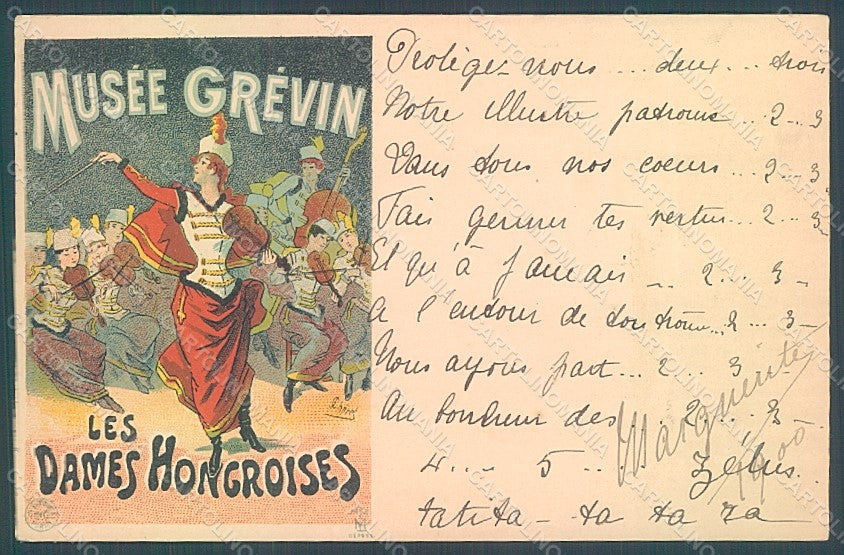 MUSÉE GRÉVIN
LES
DAMES HONGROISES
Protégez nous ... deux ... trois
Notre illustre patronne .. 2 ... 3
Dans tous nos coeurs ... 2 ... 3
Fais germer tes vertus ... 2 ... 3
Et qu'à jamais ... 2 ... 3
A l'entour de ton trône ... 2 ... 3
Nous ayons part ... 2 ... 3
Au bonheur des 2 ... 3
4 ... 5 ... Zélus
tatita - ta ta za
Marguerite
1900
DEPOSE
CARTOLINOMANIA